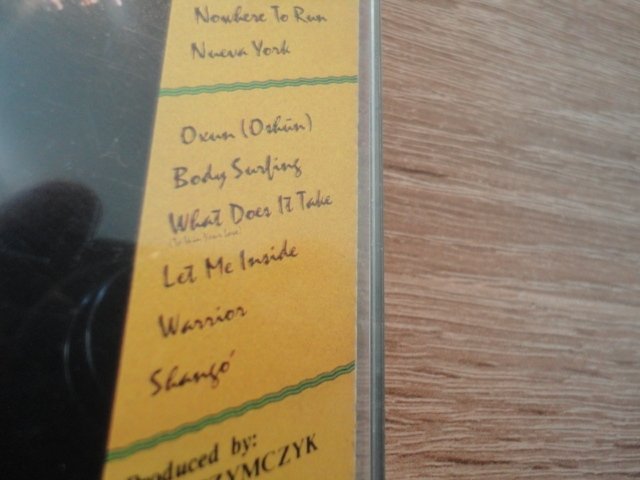 Nowhere To Run
Nueva York
Oxun (Oshūn)
Body Surfing
What Does It Take
(To Win Your Love)
Let Me Inside
Warrior
Shangó
Produced by:
ZYMCZYK